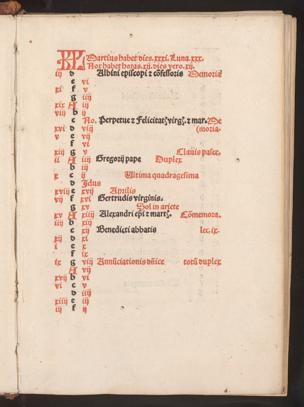 KL Martius habet dies.xxxi. Luna.xxx.
Nox habet horas.xij. dies vero.xij.
iij d Albini episcopi z cōfessoris Memoria
e vi
xi f v
g iiij
xix A iij
viij b ij
c No. Perpetue z Felicitatꝭ virgꝭ. z mar. Me
xvi d viij (moria.
v e vij
f vi
xiij g v Clauis pasce.
ij A iiij Gregorij pape Duplex
b iij
x c ij Ultima quadragesima
d Idus
xviij e xvij Aprilis
vij f xvi Gertrudis virginis.
g xv Sol in ariete
xv A xiiij Alexandri epi z martꝭ. Cōmemora.
iiij b xiij
c xij Benedicti abbatis lec.ix.
xij d xi
i e x
f ix
ix g viij Annūciationis dn̄ice totū duplex
A vij
xvij b vi
vi c v
d iiij
xiiij e iij
iij f ij